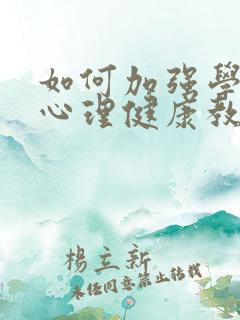 如何加强學
心理健康教
楊立新
未经同意禁止转载